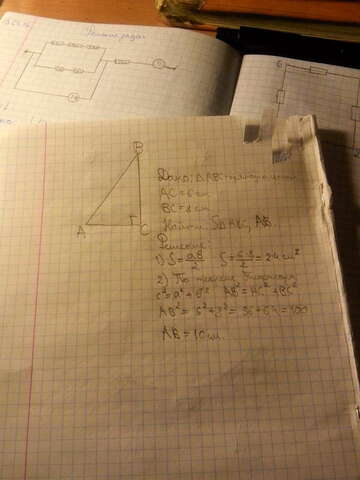 Решение задач
Б
B
A
C
Дано: ΔABC - прямоугольн
AC = 6 см
BC = 8 см
Найти: SΔABC, AB
Решение:
1) S = ab/2 S = 6·8/2 = 24 см²
2) По теореме Пифагора:
c² = a² + b² AB² = AC² + BC²
AB² = 6² + 8² = 36 + 64 = 100
AB = 10 см.